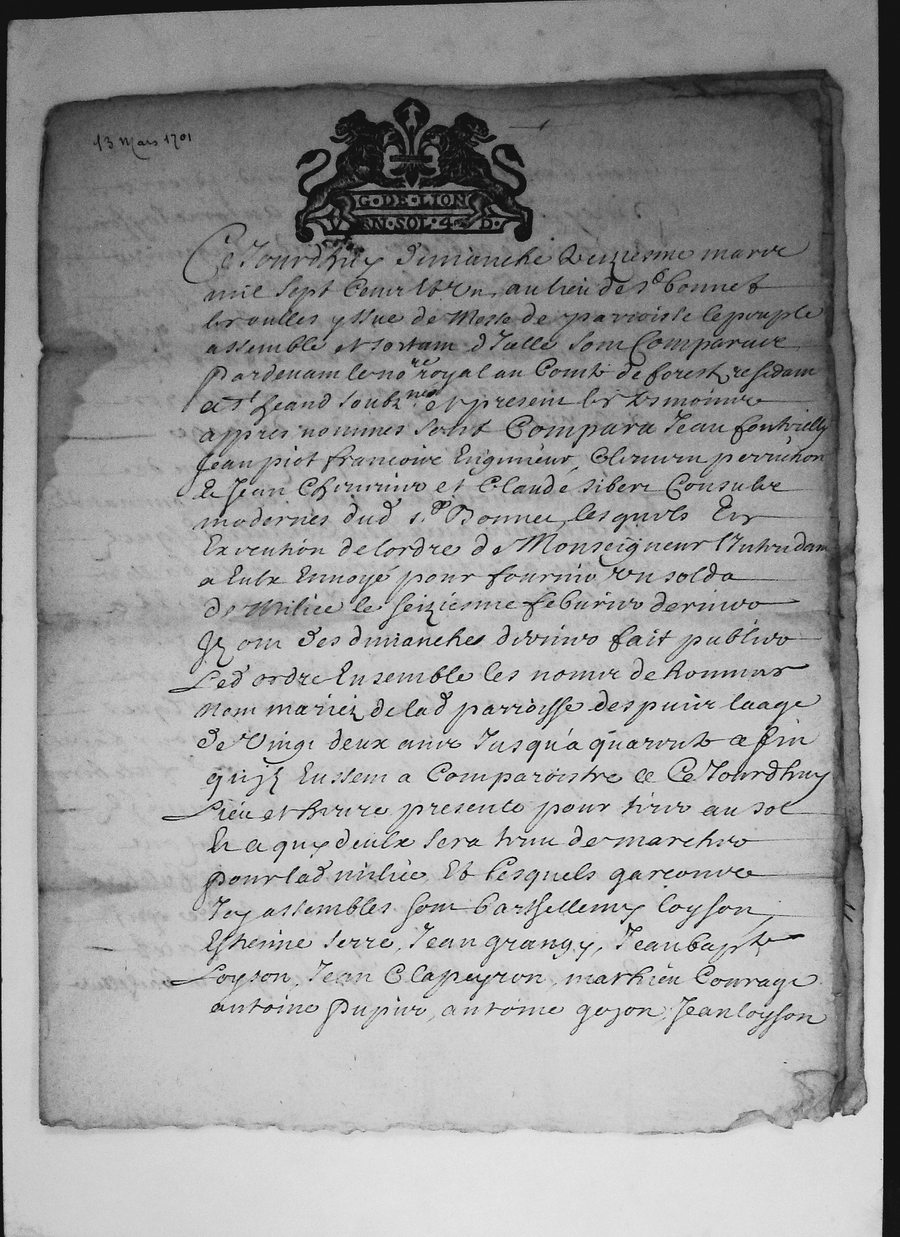 13 Mars 1701
G·DE·LION
VN·SOL·4·D·
Ce Jourdhuy dimanche treiziesme mars
mil sept Cens et Un, au lieu de st bonnet
les oulles yssue de Messe de parroisse le peuple
assemble et sortam d'Icelle som Comparus
Pardevam le nore royal au Comté de forest residam
a st heand soubzne et presem les tesmoins
appres nommes sont Compara Jean fontvielly
Jean piot francois Enginieur, Clemem perrichon
& Jean Chirurino et Claude sibert Consulz
modernes dud st Bonnet, lesquels En
Execution de lordre de Monseigneur lIntendam
a Eulx Envoyé pour fournir un solda
de Milice le seiziesme febvrier dernier
Jlz om des dimanches dernier fait publier
Led ordre Ensemble les noms de hommes
nom mariez de lad parroisse despuis laage
de Vingt deux ans Jusqu'a quarente a fin
quilz Eussem a Comparoistre a Ce Jourdhuy
Lieu et heure presente pour tirer au sol
Et a quy deulx sera tenu de marcher
pour lad milice Et Lesquels garcons
Icy assembles som barthellemy loyson,
Esthienne serre, Jean grangy, Jean bapte
Loyson, Jean Clapeyron, mathieu Courage
antoine Dupuis, antoine goyon, Jean loyson